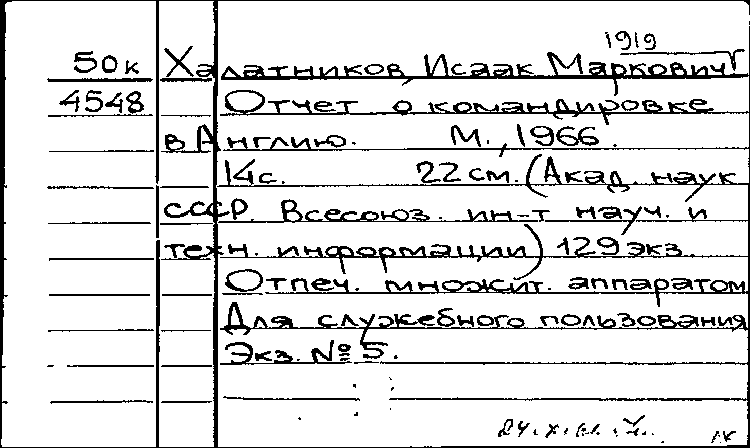 1919
50к Халатников, Исаак Маркович
4548 Отчет о командировке
в Англию. М., 1966.
14с. 22 см. (Акад. наук
СССР. Всесоюз. ин-т науч. и
техн. информации) 129 экз.
Отпеч. множит. аппаратом
Для служебного пользования
Экз. № 5.